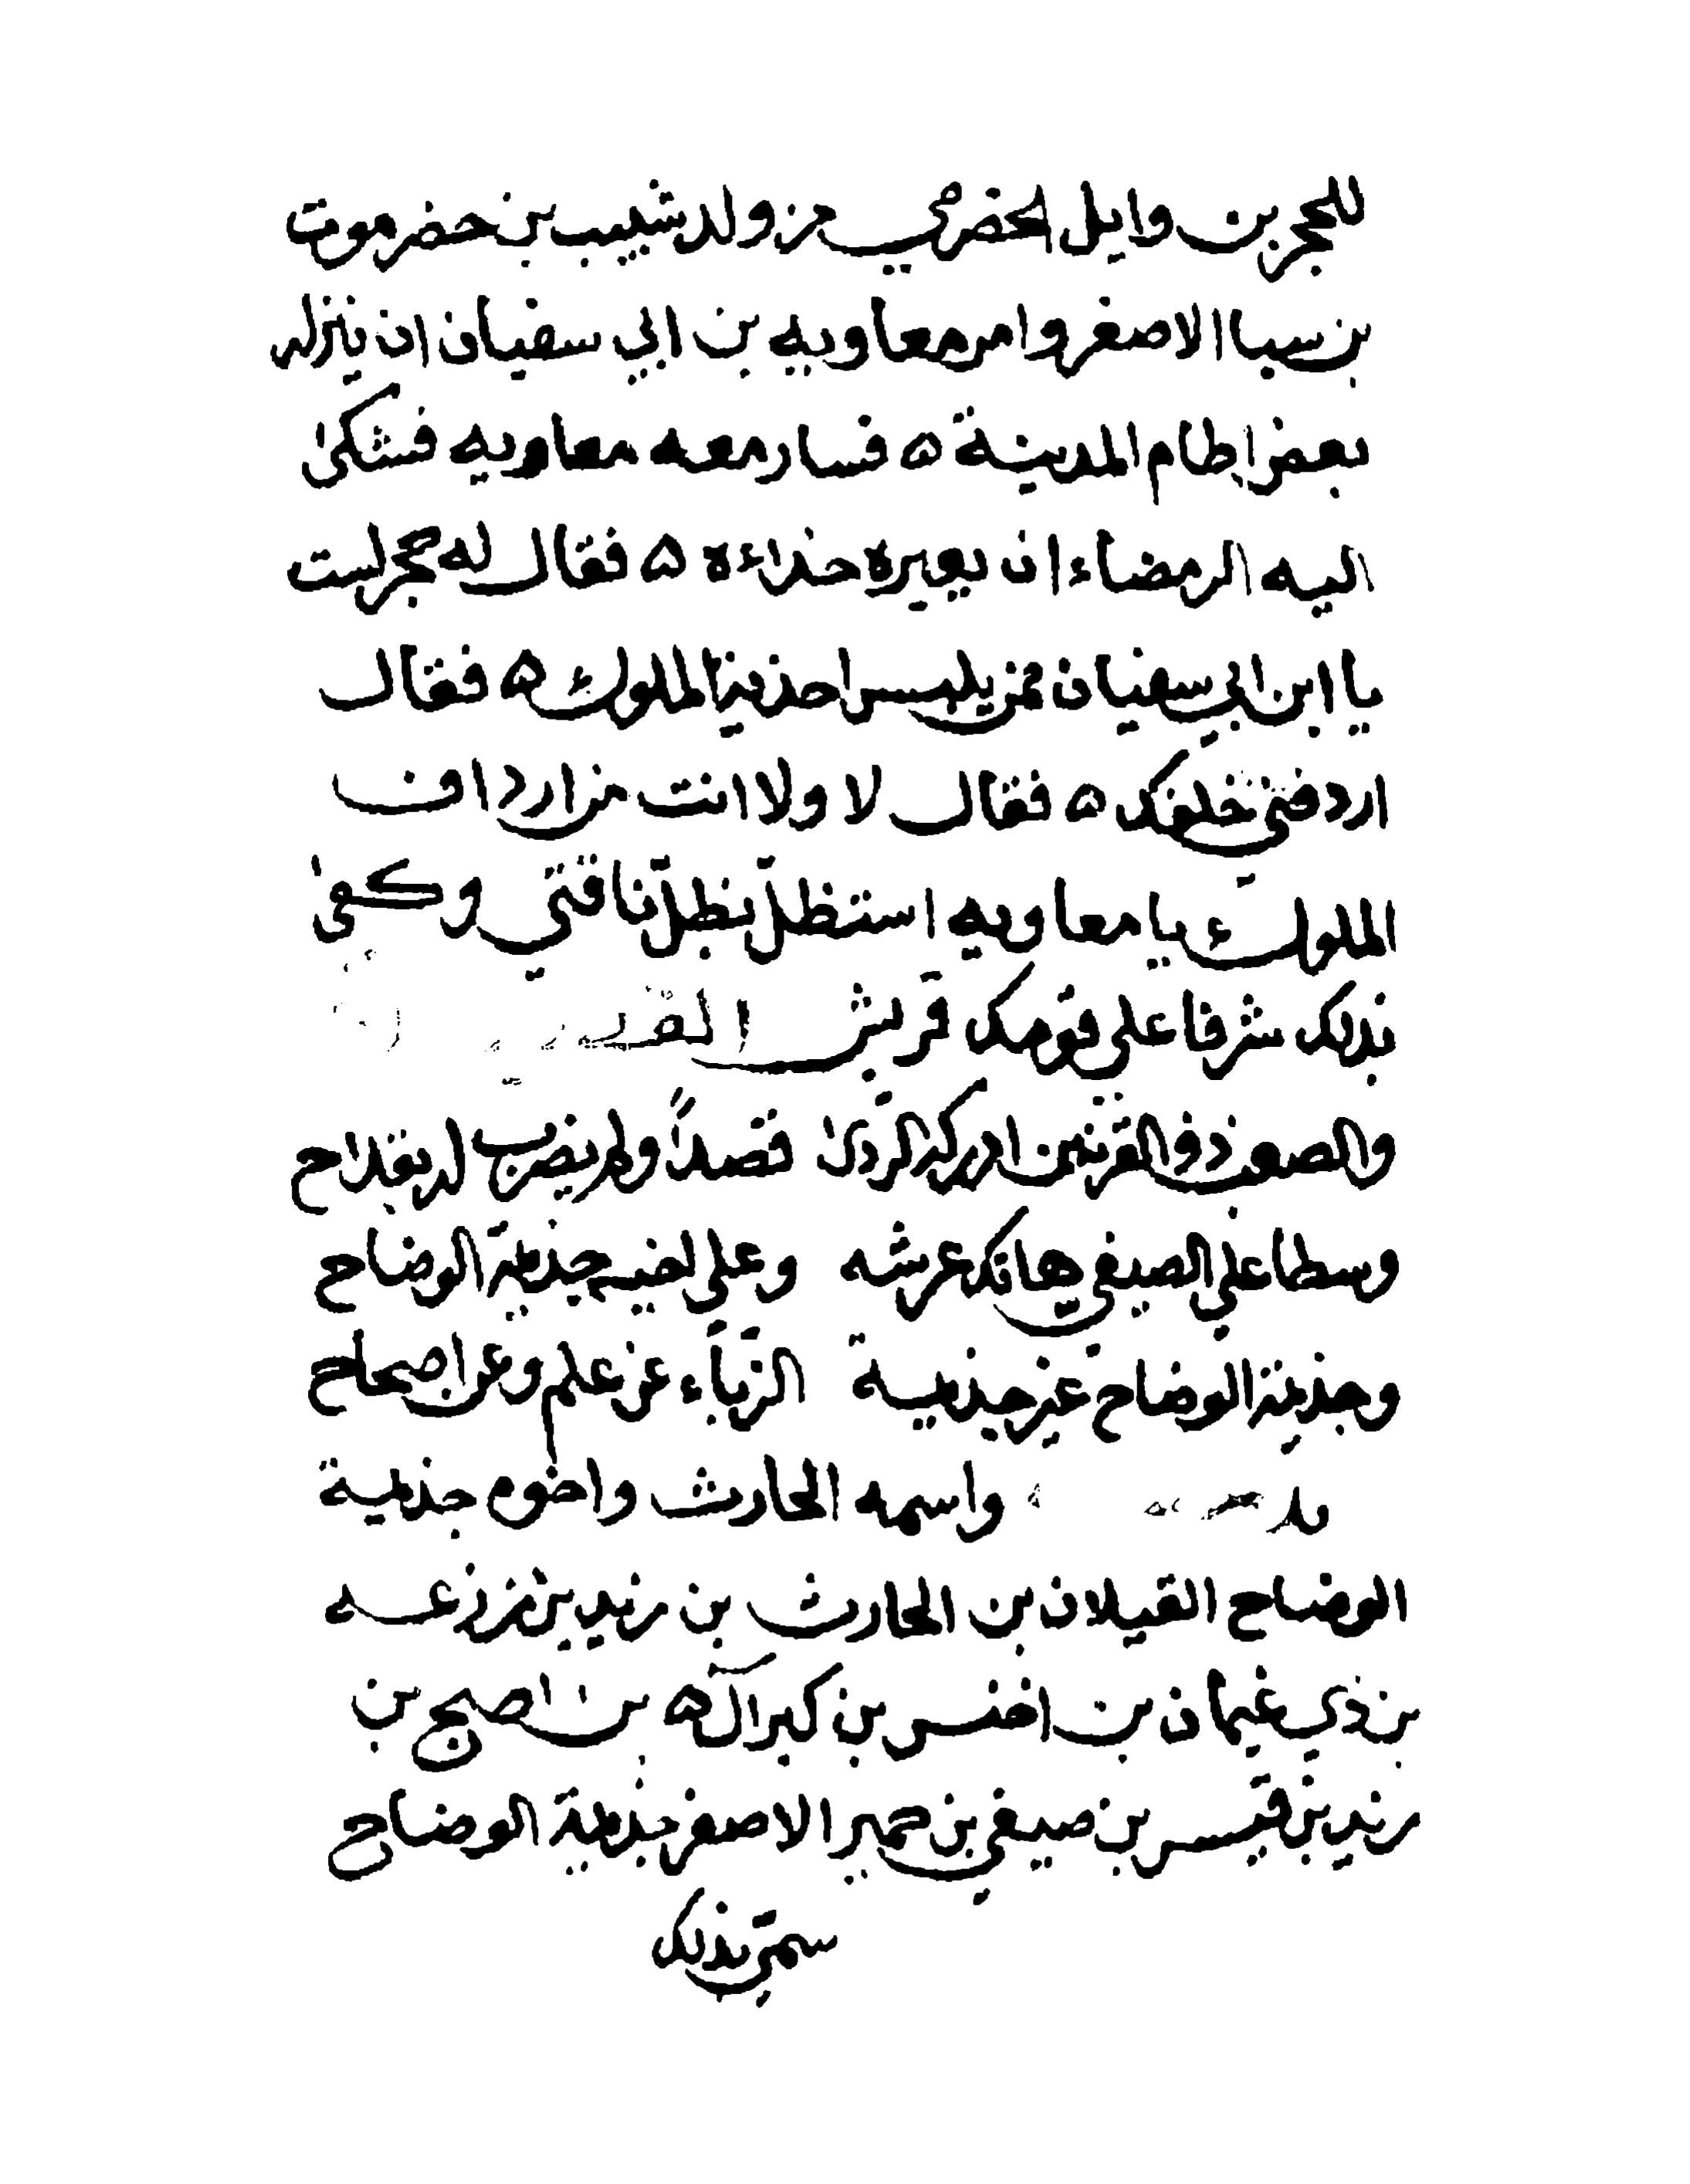 للحجر بن وايل الحضرمي من ولد شبيب بن حضرموت
بن سبا الاصغر وامر معاويه بن ابي سفيان ان ينزله
بعض اطام المدينة ۵ فسار معه معاويه فشكى
اليه الرمضاء ان يعيره حذاءه ۵ فقال له حجر لست
يا ابن ابي سفيان ممن يلبس احذية الملوك ۵ فقال
اردفني خلفك ۵ فقال لا ولا انت من ارداف
الملوك يا معاويه استظل بظل ناقتي وكفى
بذلك شرفا على قومك قريش
والصعب ذو القرنين ادركه الردى قصدا ولم يضرب له بقداح
وسطا على الصيفي هاتك عرشه وعلى لخنيه جذيمة الوضاح
وجذيمة الوضاح غير جذيمة الزباء عن علم وعن اصحاح
واسمه الحارث واخوه جذيمة
الوضاح القيلان بن الحارث بن زيد بن زرعه
بن ذي غيمان بن اخنس بن كبر ال ۵ بن اصبح بن
زيد بن قيس بن صيفي بن حمير الاصغر جذيمة الوضاح
سمي بذلك